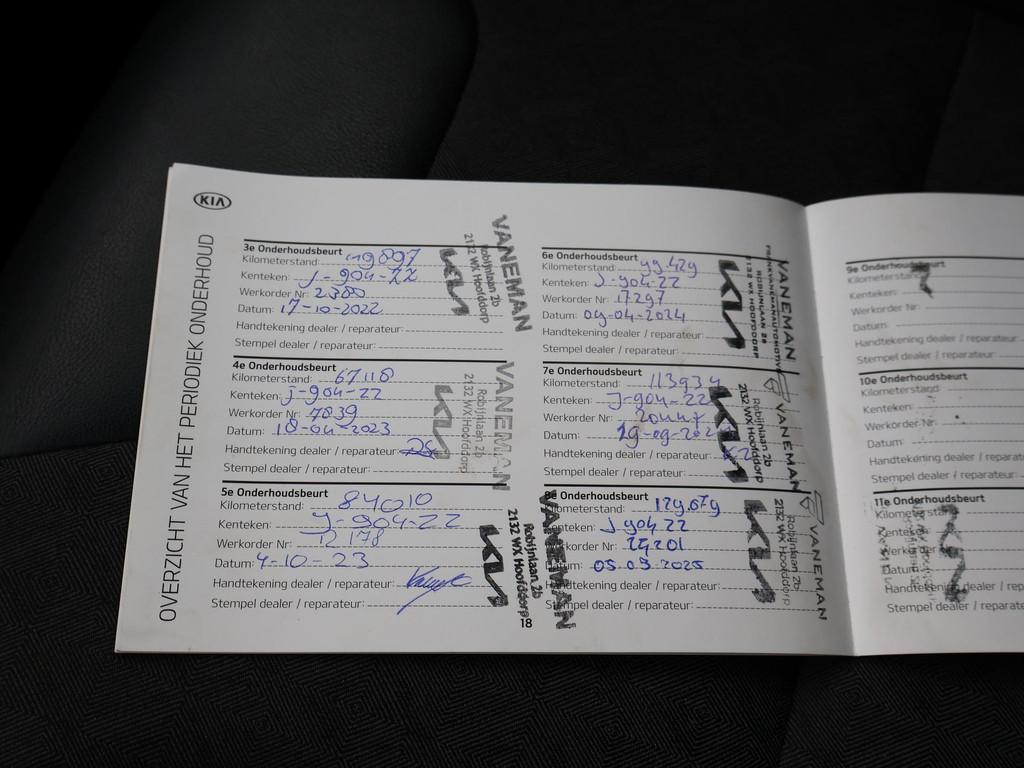 KIA
OVERZICHT VAN HET PERIODIEK ONDERHOUD
3e Onderhoudsbeurt
Kilometerstand:
Kenteken: J-904-22
Werkorder Nr: 2380
Datum: 17-10-2022
Handtekening dealer / reparateur:
Stempel dealer / reparateur:
VANEMAN
Robijnlaan 2b
2132 WX Hoofddorp
KIA
4e Onderhoudsbeurt
Kilometerstand: 67118
Kenteken: J-904-22
Werkorder Nr: 7839
Datum: 18-04-2023
Handtekening dealer / reparateur:
Stempel dealer / reparateur:
VANEMAN
Robijnlaan 2b
2132 WX Hoofddorp
KIA
5e Onderhoudsbeurt
Kilometerstand: 84010
Kenteken: J-904-22
Werkorder Nr: 12178
Datum: 4-10-23
Handtekening dealer / reparateur:
Stempel dealer / reparateur:
VANEMAN
Robijnlaan 2b
2132 WX Hoofddorp
KIA
18
6e Onderhoudsbeurt
Kilometerstand: 99.429
Kenteken: J-904-22
Werkorder Nr: 17297
Datum: 09-04-2024
Handtekening dealer / reparateur:
Stempel dealer / reparateur:
VANEMAN
ROBIJNLAAN 2B
2132 WX HOOFDDORP
KIA
7e Onderhoudsbeurt
Kilometerstand: 113934
Kenteken: J-904-22
Werkorder Nr: 20447
Datum:
Handtekening dealer / reparateur:
Stempel dealer / reparateur:
VANEMAN
Robijnlaan 2b
2132 WX Hoofddorp
KIA
8e Onderhoudsbeurt
Kilometerstand: 129.079
Kenteken: J 904 22
Werkorder Nr: 24201
Datum: 05.05.2025
Handtekening dealer / reparateur:
Stempel dealer / reparateur:
VANEMAN
Robijnlaan 2b
2132 WX Hoofddorp
KIA
9e Onderhoudsbeurt
Kilometerstand:
Kenteken:
Werkorder Nr:
Datum:
Handtekening dealer / reparateur:
Stempel dealer / reparateur:
10e Onderhoudsbeurt
Kilometerstand:
Kenteken:
Werkorder Nr:
Datum:
Handtekening dealer / reparateur
Stempel dealer / reparateur
11e Onderhoudsbeurt
Kilometerstand
Kenteken:
Werkorder
Datum:
Handtekening dealer / repara
Stempel dealer / reparate